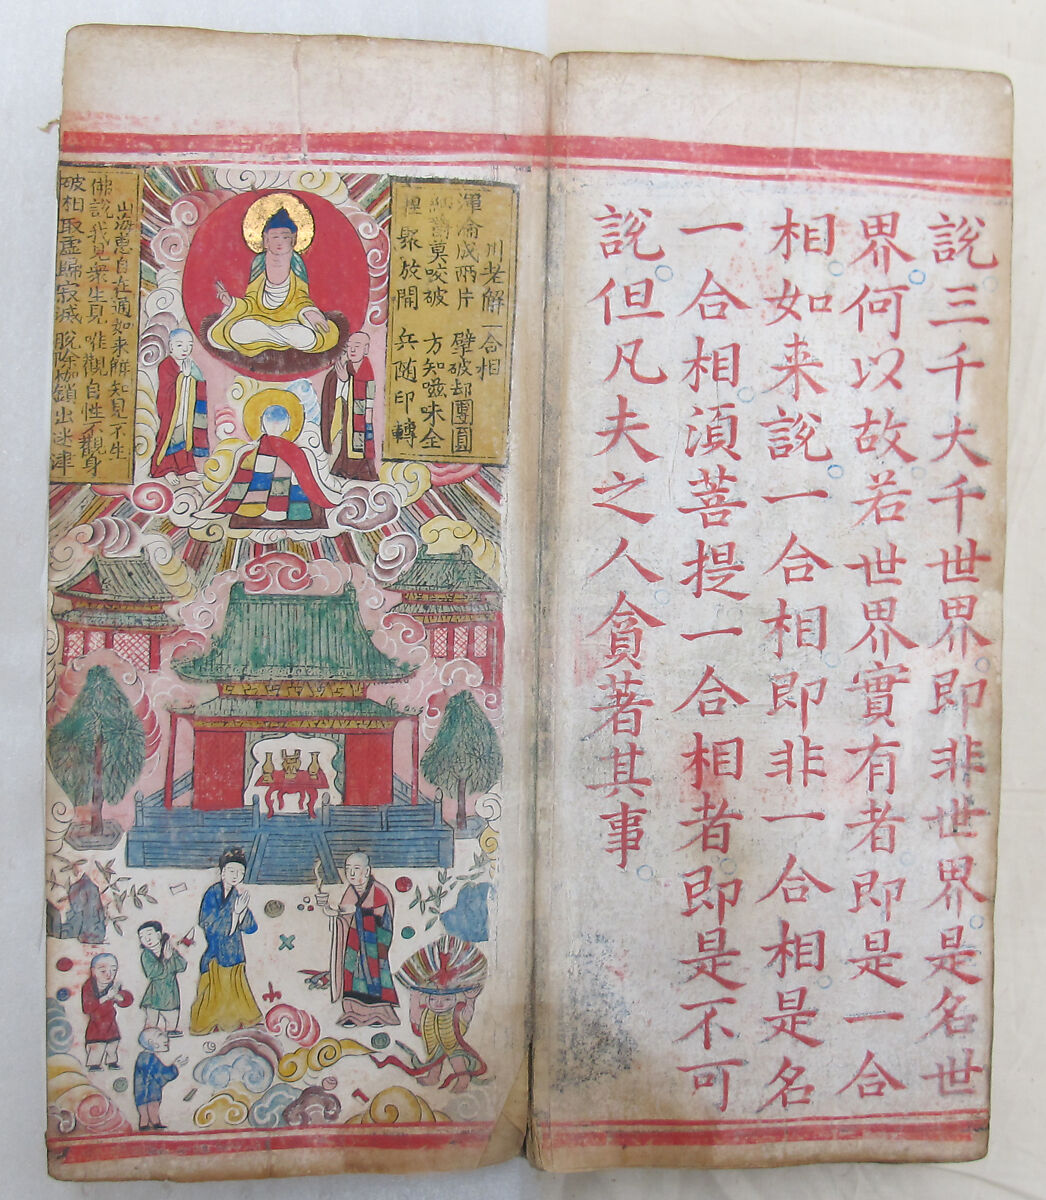 說。三千大千世界。即非世界。是名世
界。何以故若世界實有者。即是一合
相。如来說。一合相即非一合相。是名
一合相。湏菩提。一合相者即是不可
說。但凡夫之人。貪著其事。
川老解一合相
渾淪成兩片 擘破却團圓
細嚼莫咬破 方知嗞味全
捏聚放開 兵随印轉
山海惠自在通如来解知見不生
佛說我見衆生見 唯觀自性不觀身
破相取虛歸寂滅 脫除枷鎖出迷津